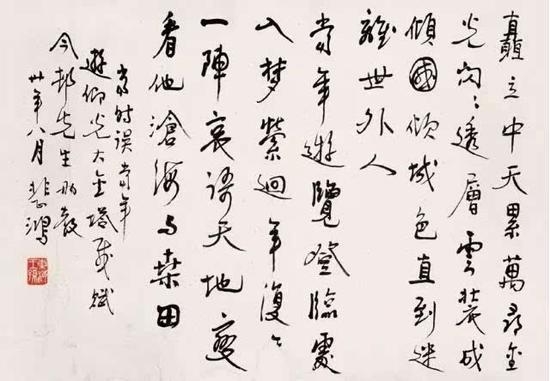 矗立中天累萬尋金
光閃〻透層雲裝成
傾國傾城色直到迷
離世外人
當年遊覽登臨處
入夢縈迴年復〻
一陣哀謌天地變
看他滄海与桑田
時誤當年
遊仰光大金塔感賦
邨先生教
卅年八月 悲鴻